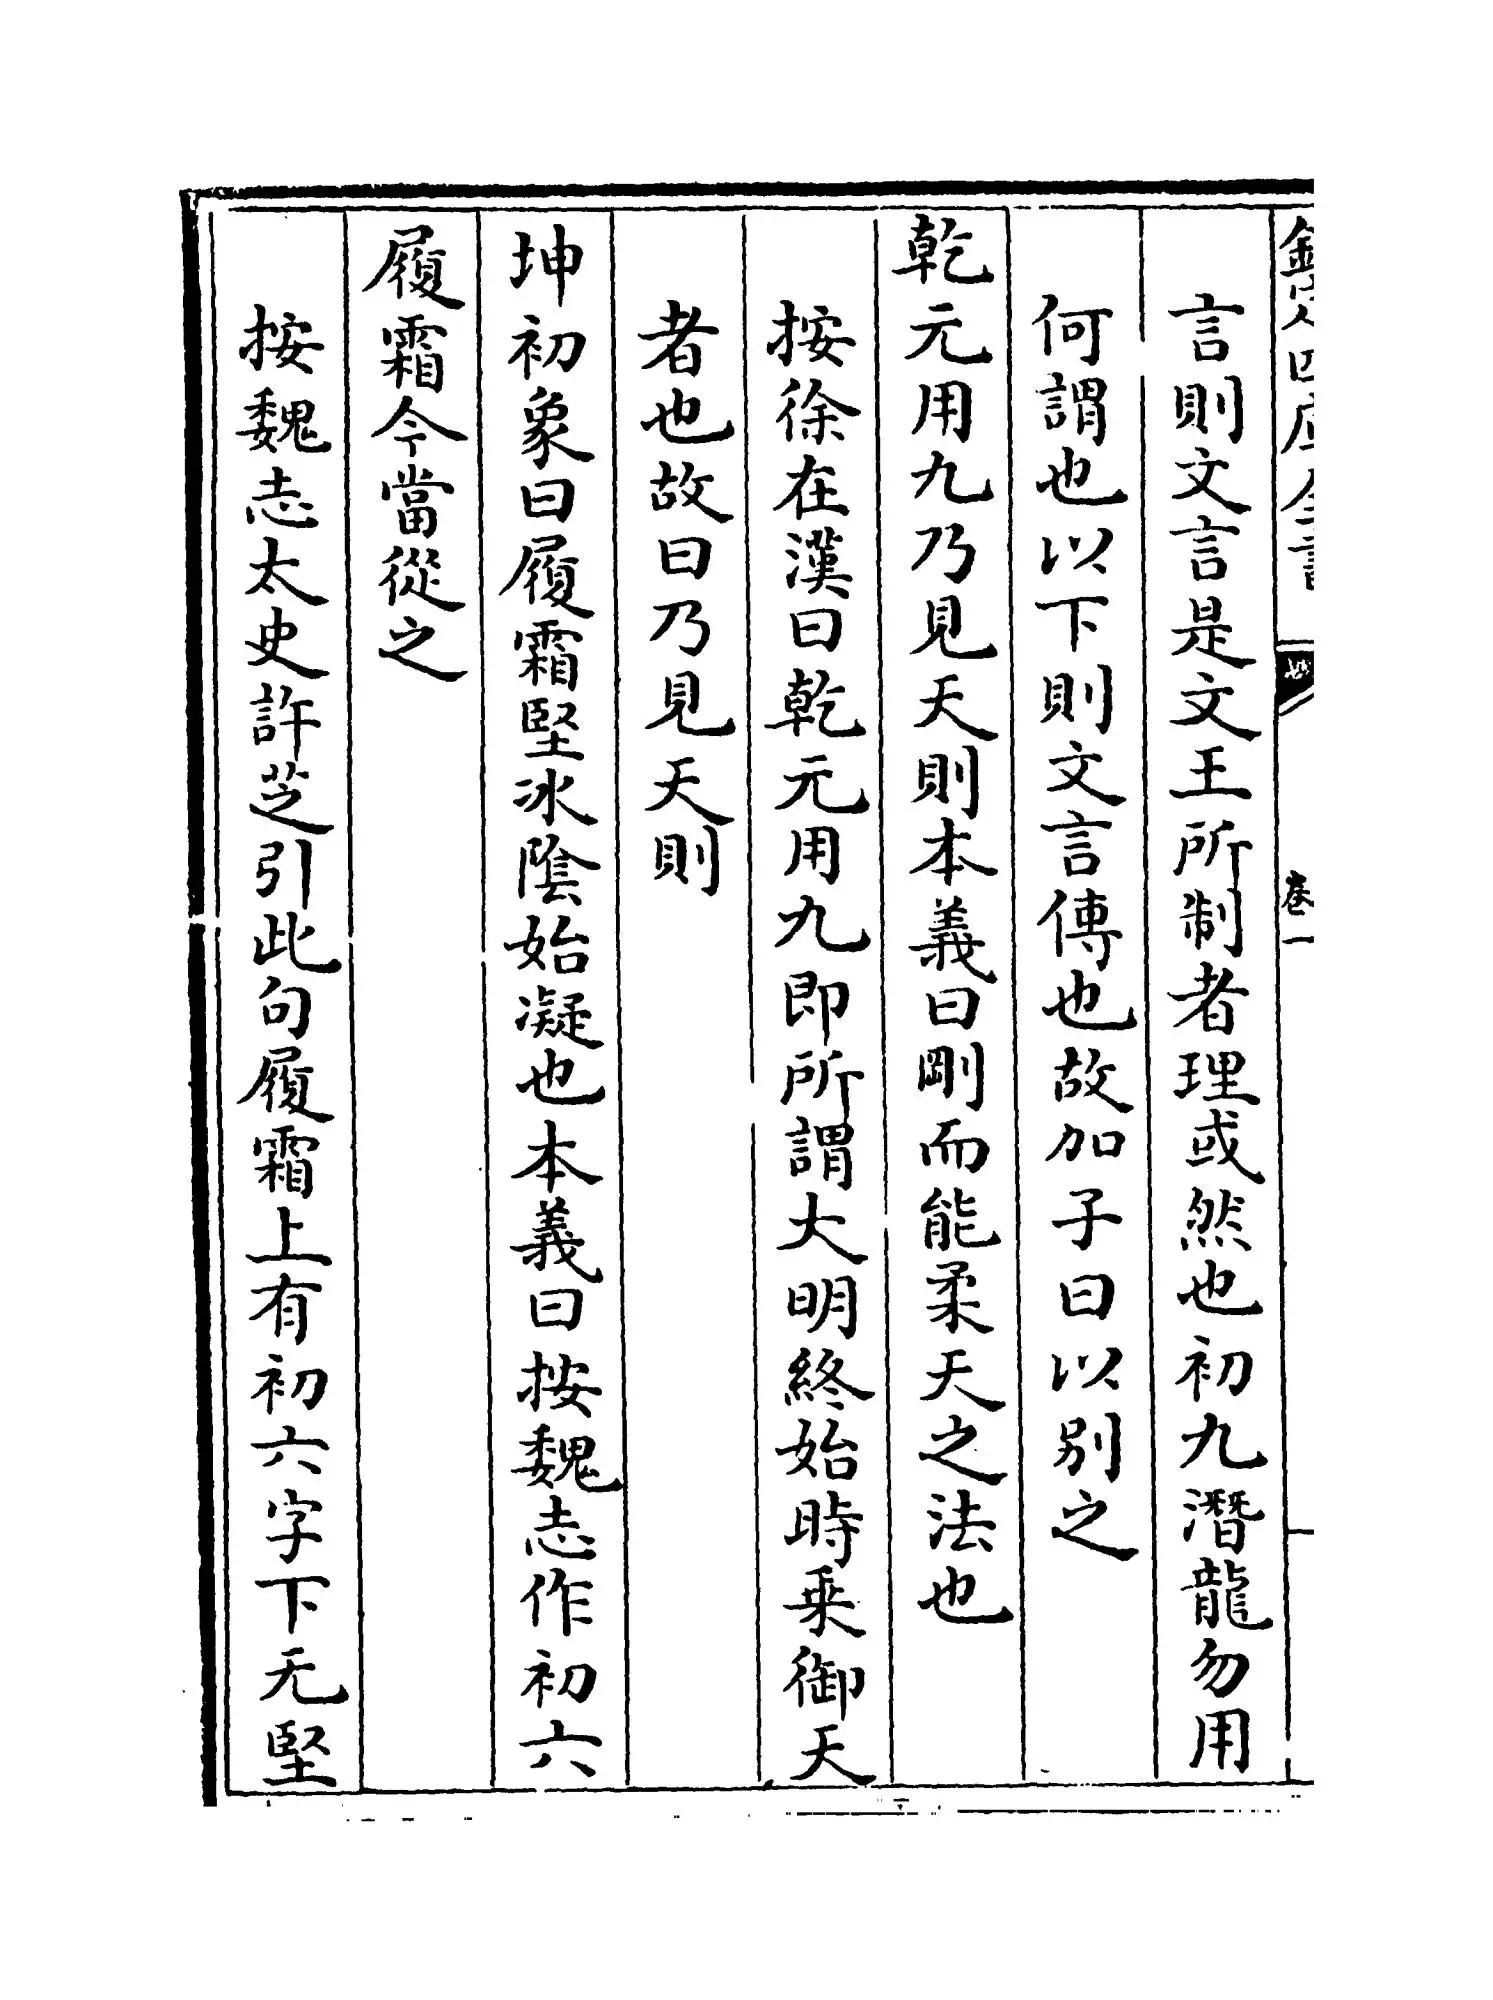 欽定四庫全書
卷一
言則文言是文王所制者理或然也初九潛龍勿用
何謂也以下則文言傳也故加子曰以別之
乾元用九乃見天則本義曰剛而能柔天之法也
按徐在漢曰乾元用九即所謂大明終始時乗御天
者也故曰乃見天則
坤初象曰履霜堅冰陰始凝也本義曰按魏志作初六
履霜今當從之
按魏志太史許芝引此句履霜上有初六字下无堅